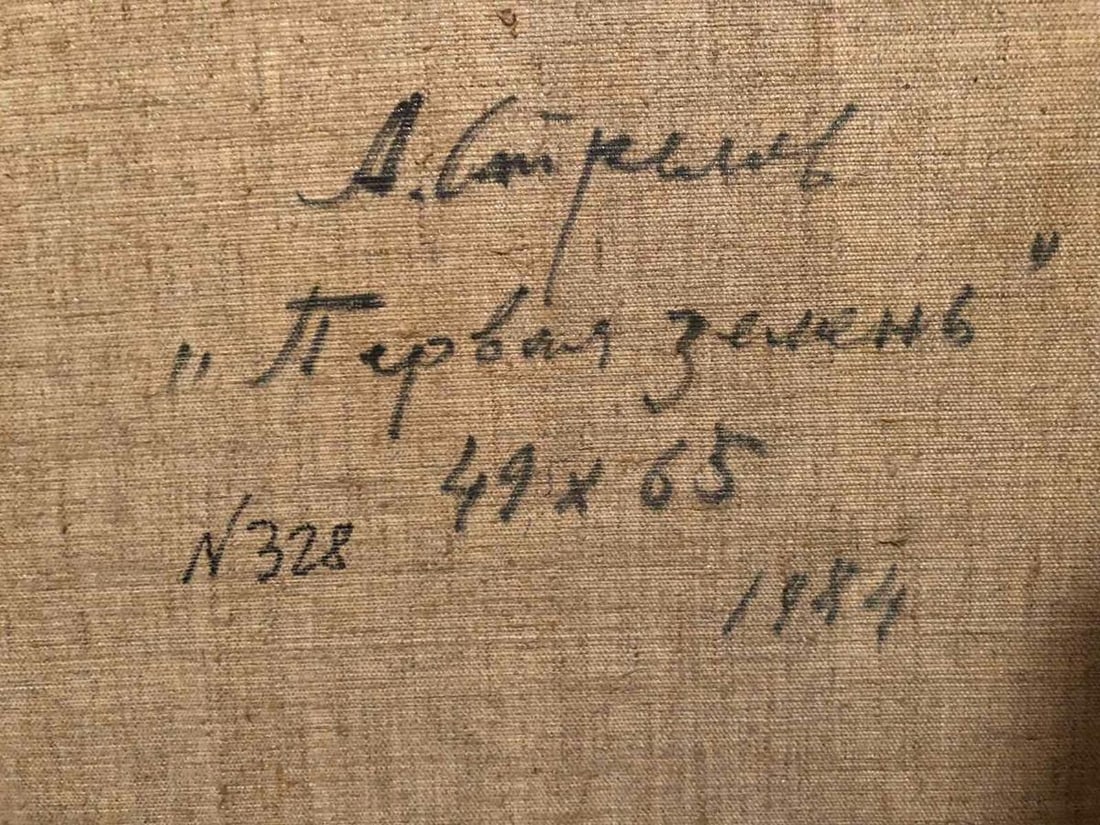 А.
"Первая зелень"
49 x 65
N 328
1984